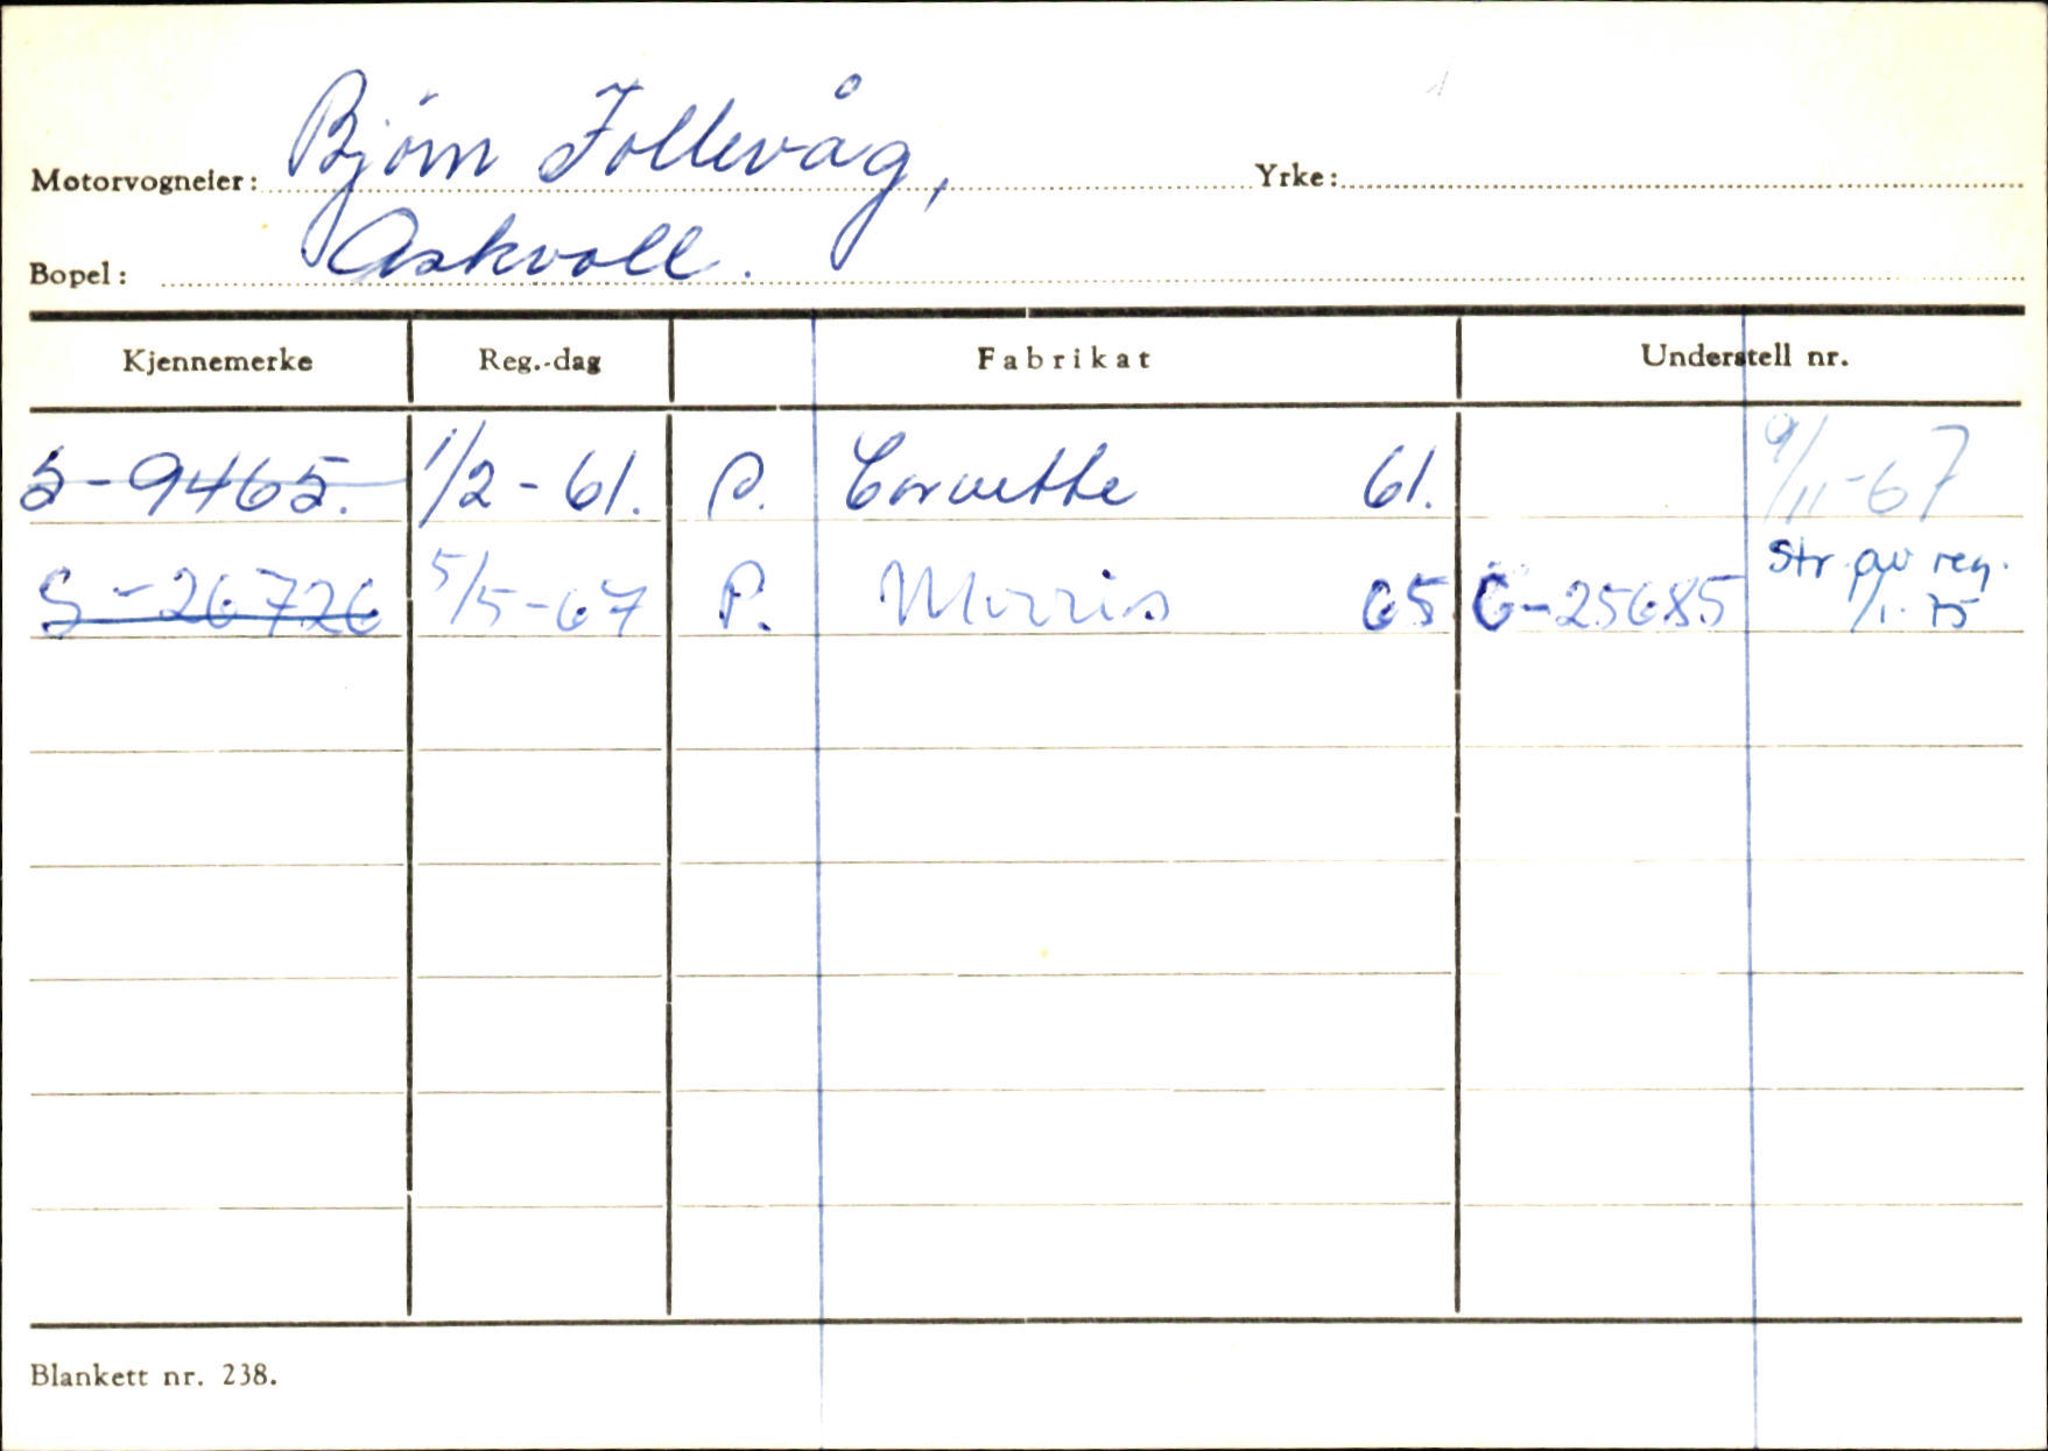 Motorvogneier: Bjørn Follevåg, Yrke:
Bopel: Askvoll.
Kjennemerke Reg.-dag Fabrikat Understell nr.
S-9465. 1/2-61. P. Corvette 61. 9/11-67
S-26726 5/5-67 P. Morris 65 G-25685 Str. av reg. 1/1-75
Blankett nr. 238.